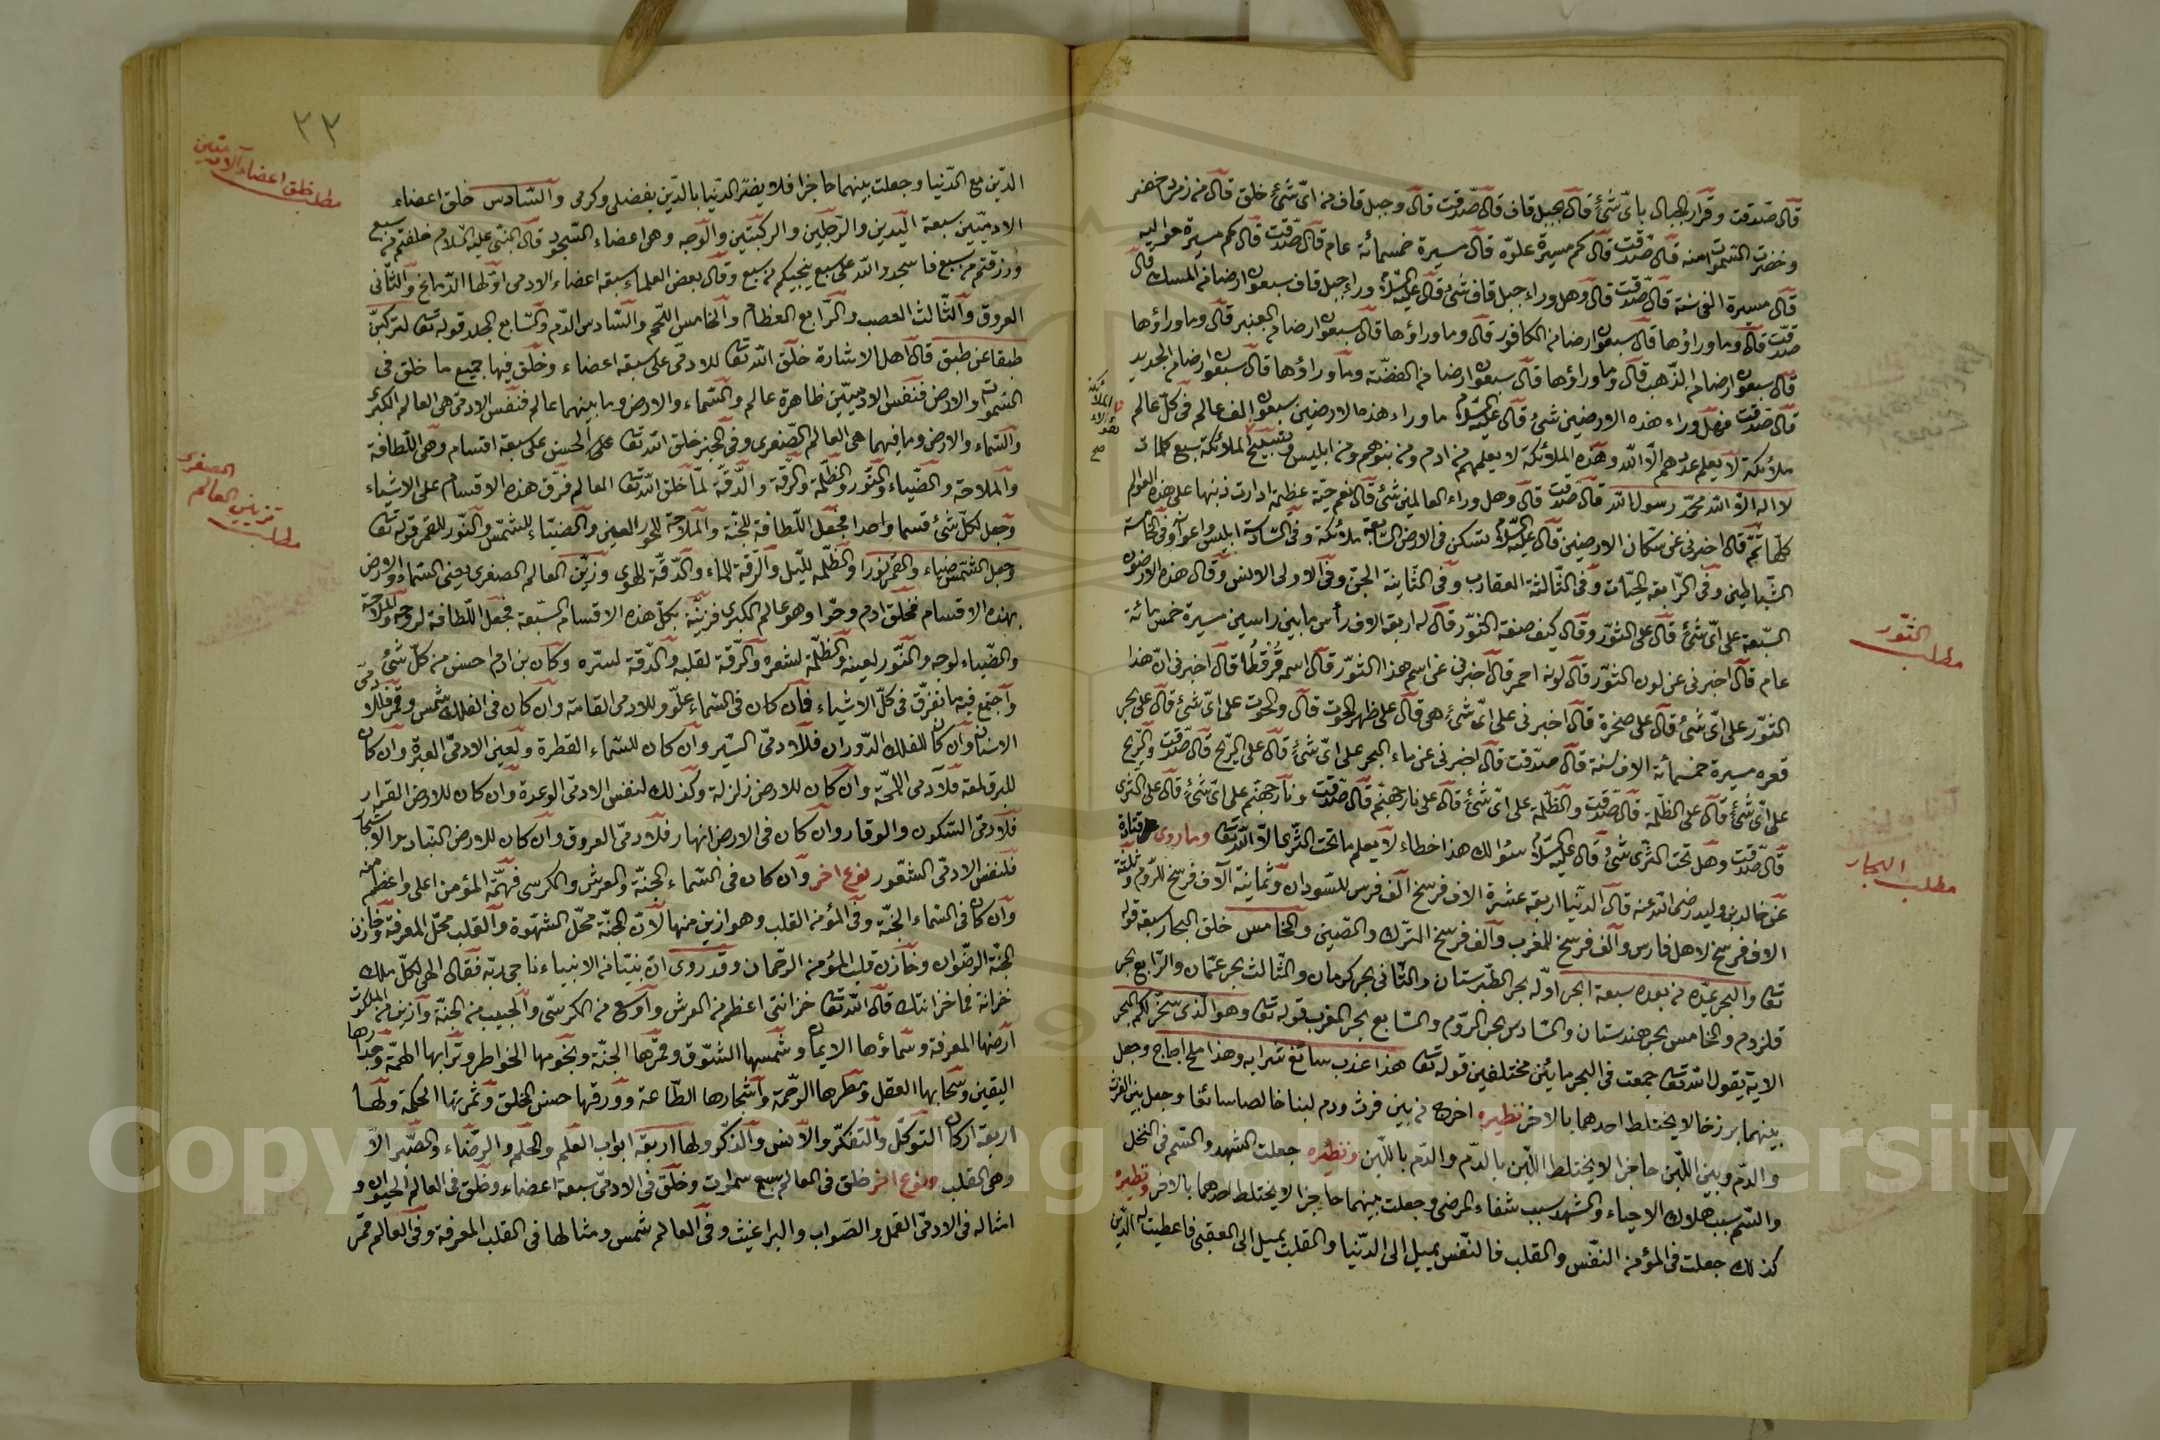 قال صدقت وقرار الجبال باىّ شئ قال بجبل قاف قال صدقت قال وجبل قاف من اىّ شئ خلق قال من زمرد اخضر
وخضرت السموات منه قال صدقت قال كم مسيرة علوّه قال مسيرة خمسمائة عام قال صدقت قال كم مسيرة حواليه
قال مسيرة الفى سنة قال صدقت قال وهل وراء جبل قاف شئ قال عليه السلام وراء جبل قاف سبعون ارضا من المسك قال
صدقت قال وما وراؤها قال سبعون ارضا من الكافور قال وما وراؤها قال سبعون ارضا من العنبر قال وما وراؤها
قال سبعون ارضا من الذهب قال وما وراؤها قال سبعون ارضا من الفضّة وما وراؤها قال سبعون ارضا من الحديد
قال صدقت فهل وراء هذه الارضين شئ قال عليه السلام ما وراء هذه الارضين سبعون الف عالم فى كلّ عالم
ملائكة لا يعلم عددهم الّا الله وهذه الملائكة لا يعلمهم من ادم ومن بنوهم ومن ابليس وتسبيح الملائكة سبع كلمات
لا اله الّا الله محمّد رسول الله قال صدقت قال وهل وراء العالمين شئ قال نعم حيّة عظيمة ادارت ذنبها على هذه العوالم
كلّها ثمّ قال اخبرنى عن سكان الارضين قال عليه السلام يسكن فى الارض السّابعة ملائكة وفى السّادسة ابليس واعوانه وفى الخامسة
الشّياطين وفى الرّابعة الحيّات وفى الثّالثة العقارب وفى الثّانية الجنّ وفى الاولى الانس وقال هذه الارضون
السّبعة على اىّ شئ قال على الثّور وقال كيف صفة الثّور قال له اربعة الاف رأس ما بين راسين مسيرة خمس مائة
عام قال اخبرنى عن لون الثّور قال لونه احمر قال اخبرنى عن اسم هذا الثّور قال اسمه قال اخبرنى انّ هذا
الثّور على اىّ شئ قال على صخرة قال اخبرنى على اىّ شئ هى قال على ظهر الحوت قال والحوت على اىّ شئ قال على بحر
قعره مسيرة خمسمائة الاف سنة قال صدقت قال اخبرنى عن ماء البحر على اىّ شئ قال على الرّيح قال صدقت والرّيح
على اىّ شئ قال على الظّلمة قال صدقت والظّلمة على اىّ شئ قال على نار جهنّم قال صدقت ونار جهنّم على اىّ شئ قال على الثّرى
قال صدقت وهل تحت الثّرى شئ قال عليه السلام سؤالك هذا خطاء لا يعلم ما تحت الثّرى الّا الله تعا وما روى قتادة
عن خالد بن وليد رضى الله عنه قال الدّنيا اربعة عشرة الاف فرسخ الف فرس للسّودان وثمانية آلاف فرسخ للرّوم وثلثة
الاف فرسخ لاهل فارس والف فرسخ للمغرب والف فرسخ التّرك والصّين والخامس خلق البحار سبعة قوله
تعا والبحر يمدّه من بعده سبعة ابحر اوّله بحر الطّبرستان والثّانى بحر كرمان والثّالث بحر عمّان والرّابع بحر
قلزوم والخامس بحر هندستان والسّادس بحر الرّوم والسّابع بحر المغرب قوله تعا وهو الّذى سخّر لكم البحر
الاية يقول الله تعا جمعت فى البحر مائين مختلفين قوله تعا هذا عذب سائغ شرابه وهذا ملح اجاج وجعل
بينهما برزخا لا يختلط احدهما بالاخر نظيره اخرج من بين فرث ودم لبنا خالصا سائغا وجعل بين الفرث
والدّم وبين اللّبن حاجزا لا يختلط اللّبن بالدّم والدّم باللّبن ونظيره جعلت الشهد والسّم فى النّحل
والسّم سبب هلاك الاحياء والشهد سبب شفاء المرضى وجعلت بينهما حاجزا لا يختلط احدهما بالاخر ونظيره
كذلك جعلت فى المؤمن النّفس والقلب فالنّفس يميل الى الدّنيا والقلب يميل الى العقبى فاعطيت له الدّين
مطلب الثّور
مطلب البحار
٣٣
الدّين مع الدّنيا وجعلت بينهما حاجزا فلا يضرّ الدّنيا بالدّين بفضلى وكرمى والسّادس خلق اعضاء
الادميّين سبعة اليدين والرّجلين والركبتين والوجه وهى اعضاء السّجود قال النّبى عليه السلام خلقتم من سبع
ورزقتم من سبع فاسجدوا لله على سبع ينجيكم من سبع وقال بعض العلماء سبعة اعضاء الادمى اوّلها الدّماغ والثّانى
العروق والثّالث العصب والرّابع العظام والخامس اللّحم والسّادس الدّم والسّابع الجلد قوله تعا لتركبنّ
طبقا عن طبق قال اهل الاشارة خلق الله تعا للادمى على سبعة اعضاء وخلق فيها جميع ما خلق فى
السّموات والارض فنفس الادميّين ظاهرة عالم والسّماء والارض وما بينهما عالم فنفس الادمى هى العالم الكبرى
والسّماء والارض وما فيهما هى العالم الصّغرى وفى الخبر خلق الله تعا على الحسن على سبعة اقسام وهى اللّطافة
والملاحة والضّياء والنّور والظّلمة والرّقة والدّقة لمّا خلق الله تعا العالم فرّق هذه الاقسام على الاشياء
وجعل لكلّ شئ قسما واحدا فجعل اللّطافة للجنّة والملاحة للحور العين والضّياء للشمس والنّور للقمر قوله تعا
وجعل الشمس ضياء والقمر نورا والظّلمة للّيل والرّقة للماء والدّقة للهوى وزيّن العالم الصغرى يعنى السّماء والارض
بهذه الاقسام فخلق ادم وحوّا وهو عالم الكبرى فزيّنه بكلّ هذه الاقسام السّبعة فجعل اللّطافة لروحه والملاحة
والضّياء لوجهه والنّور لعينه والظّلمة لشعره والرّقة لقلبه والدّقة لسرّه وكان بن ادم احسن من كلّ شئ
واجتمع فيه ما تفرّق فى كلّ الاشياء فان كان فى السّماء علوّ وللادمى القامة وان كان فى الفلك شمس وقمر فللادمى
الاسنان وان كان للفلك الدّوران فللادمىّ السّير وان كان للسّماء القطرة ولعين الادمىّ العبرة وان كان
للبرق لمعة فلادمى اللّمحة وان كان للارض زلزلة وكذلك لنفس الادمى الوعدة وان كان للارض القرار
فلادمىّ السّكون والوقار وان كان فى الارض انهار فلادمىّ العروق وان كان للارض النّبات والاشجار
فلنفس الادمّى الشّعور نوع اخر وان كان فى السّماء الجنّة والعرش والكرسى فهمّة المؤمن اعلى واعظم منه
وان كان فى السّماء الجنّة وفى المؤمن القلب وهو ازين منها لانّ الجنّة محلّ الشّهوة والقلب محلّ المعرفة وخازن
الجنّة الرضوان وخازن قلب المؤمن الرحمان وقد روى انّ نبيّا من الانبياء ناجى ربّه فقال الهى لكلّ ملك
خزانة فما خزانتك قال الله تعا خزانتى اعظم من العرش واوسع من الكرسّى واطيب من الجنّة وازين من الملكوت
ارضها المعرفة وسماؤها الايمان وشمسها الشّوق وقمرها المحبّة ونجومها الخواطر وترابها الهمّة وجدارها
اليقين وسحابها العقل ومطرها الرّحمة واشجارها الطّاعة وورقها حسن الخلق وثمرتها الحكمة ولها
اربعة اركان التوكّل والتّفكّر والانس والذّكر ولها اربعة ابواب العلم والحلم والرّضاء والصّبر الا
وهى القلب ونوع اخر خلق فى العالم سبع سموات وخلق فى الادمىّ سبعة اعضاء وخلق فى العالم الحيوان و
امثاله فى الادمىّ القمل والصّواب والبراغيث وفى العالم شمس ومثالها فى القلب المعرفة وفى العالم قمر
مطلب خلق اعضاء الادميّين
مطلب تزيين العالم الصغرى